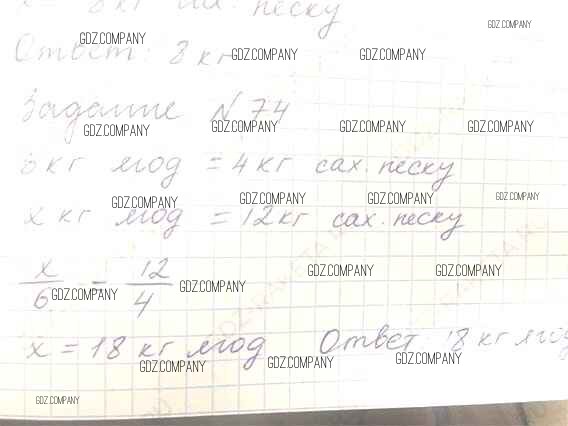 x = 8 кг сах. песку
GDZ.COMPANY
GDZ.COMPANY
Ответ: 8 кг
GDZ.COMPANY GDZ.COMPANY
Задание №74
GDZ.COMPANY GDZ.COMPANY GDZ.COMPANY GDZ.COMPANY
6 кг ягод = 4 кг сах. песку
GDZ.COMPANY GDZ.COMPANY GDZ.COMPANY GDZ.COMPANY
x кг ягод = 12 кг сах. песку
x/6 = 12/4
GDZ.COMPANY GDZ.COMPANY
GDZ.COMPANY GDZ.COMPANY
x = 18 кг ягод Ответ: 18 кг ягод
GDZ.COMPANY GDZ.COMPANY GDZ.COMPANY
GDZ.COMPANY